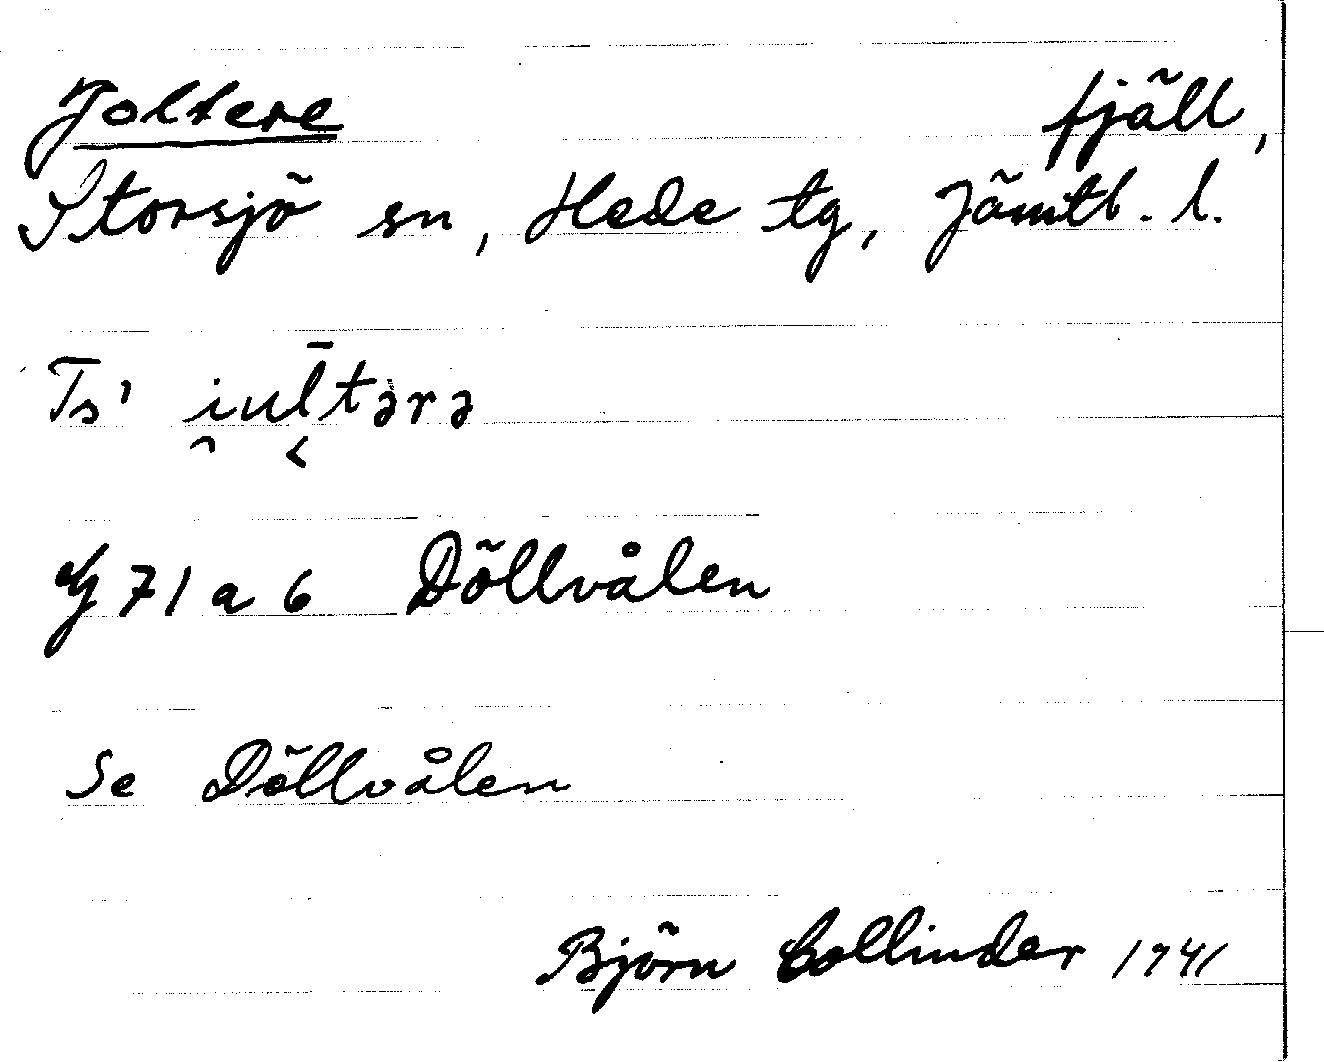 Joltere fjäll,
Storsjö sn, Hede tg, Jämtl. l.
Ts' i̯ul̄tərə
G 71 a 6 Döllvålen
Se Döllvålen
Björn Collinder 1941